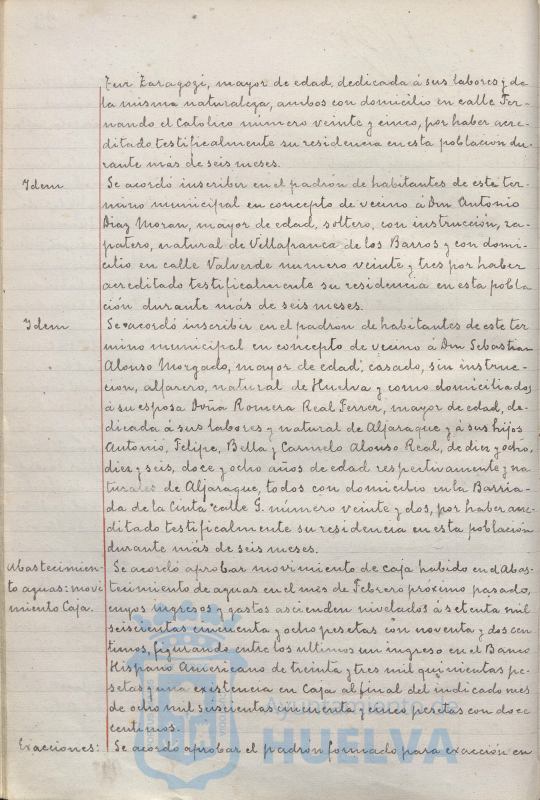 Zaragozi, mayor de edad, dedicada á sus labores y de
la misma naturaleza, ambos con domicilio en calle Fer-
nando el Catolico número veinte y cinco, por haber acre-
ditado testificalmente su residencia en esta poblacion du-
rante más de seis meses.
Idem
Se acordó inscribir en el padrón de habitantes de este ter-
mino municipal en concepto de vecino á Don Antonio
Diaz Moran, mayor de edad, soltero, con instrucción, za-
patero, natural de Villafranca de los Barros y con domi-
cilio en calle Valverde numero veinte y tres por haber
acreditado testificalmente su residencia en esta pobla
ción durante más de seis meses.
Idem
Se acordó inscribir en el padron de habitantes de este ter
mino municipal en concepto de vecino á Don Sebastian
Alonso Morgado, mayor de edad, casado, sin instruc-
cion, alfarero, natural de Huelva y como domiciliados
á su esposa Doña Romera Real Ferrer, mayor de edad, de-
dicada á sus labores y natural de Aljaraque y á sus hijos
Antonio, Felipe, Bella y Carmelo Alonso Real, de diez y ocho,
diez y seis, doce y ocho años de edad respectivamente y na-
turales de Aljaraque, todos con domicilio en la Barria-
da de la Cinta calle G. número veinte y dos, por haber acre-
ditado testificalmente su residencia en esta población
durante más de seis meses.
Abastecimien-
to aguas: movi
miento Caja.
Se acordó aprobar movimiento de caja habido en el Abas-
tecimiento de aguas en el mes de Febrero próximo pasado,
cuyos ingresos y gastos ascienden nivelados á setenta mil
seiscientas cincuenta y ocho pesetas con noventa y dos cen
timos, figurando entre los ultimos un ingreso en el Banco
Hispano Americano de treinta y tres mil quinientas pe-
setas y una existencia en Caja al final del indicado mes
de ocho mil seiscientas cincuenta y cinco pesetas con doce
centimos.
Exacciones:
Se acordó aprobar el padrón formado para exacción en
Ayuntamiento de
HUELVA